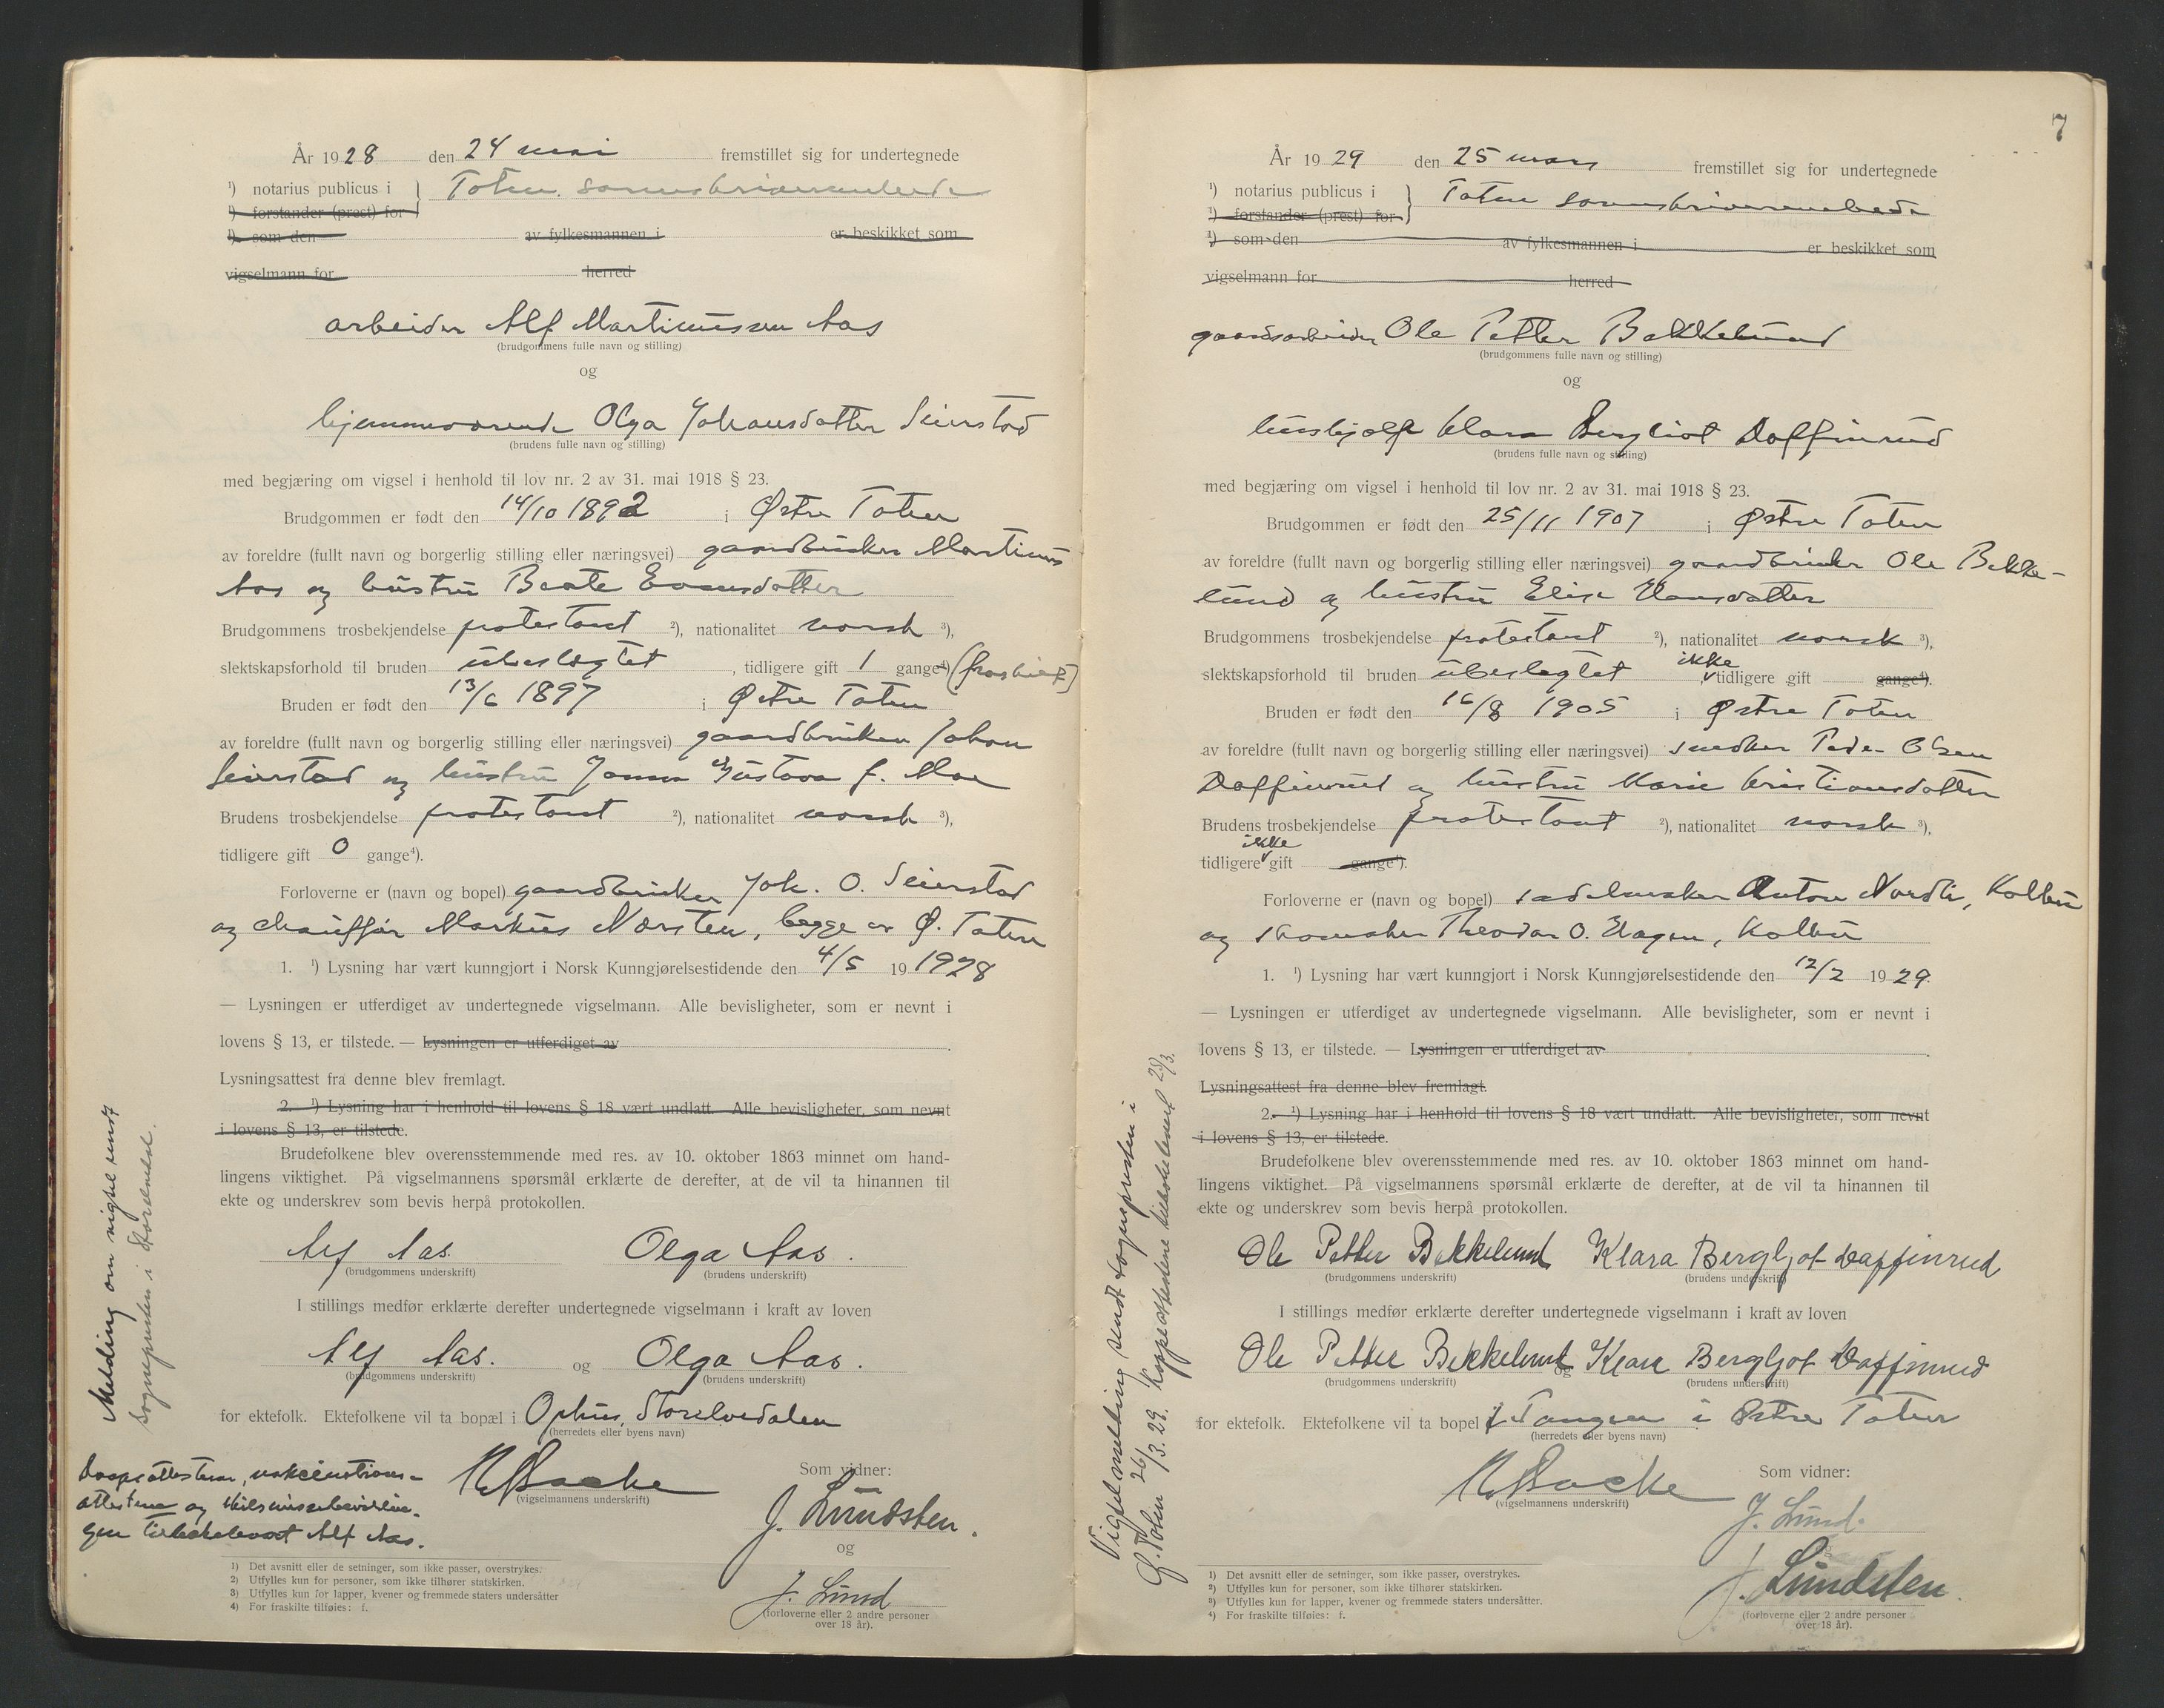 År 1928 den 24 mai fremstillet sig for undertegnede
¹) notarius publicus i } Toten sorenskriverembede
¹) forstander (prest) for
¹) som den av fylkesmannen i er beskikket som
vigselmann for herred
arbeider Alf Martinussen Aas
(brudgommens fulle navn og stilling)
og
hjemmeværende Olga Johansdatter Seierstad
(brudens fulle navn og stilling)
med begjæring om vigsel i henhold til lov nr. 2 av 31. mai 1918 § 23.
Brudgommen er født den 14/10 1892 i Østre Toten
av foreldre (fullt navn og borgerlig stilling eller næringsvei) gaardbruker Martinus
Aas og hustru Beate Evensdatter
Brudgommens trosbekjendelse protestant ²), nationalitet norsk ³),
slektskapsforhold til bruden ubeslægtet, tidligere gift 1 gange⁴) (fraskilt)
Bruden er født den 13/6 1897 i Østre Toten
av foreldre (fullt navn og borgerlig stilling eller næringsvei) gaardbruker Johan
Seierstad og hustru Gustava f. Moe
Brudens trosbekjendelse protestant ²), nationalitet norsk ³),
tidligere gift 0 gange⁴).
Forloverne er (navn og bopel) gaardbruker Joh. O. Seierstad
og chauffør Markus Nørsten, begge av Ø. Toten
1. ¹) Lysning har vært kunngjort i Norsk Kunngjørelsestidende den 4/5 19 1928
— Lysningen er utferdiget av undertegnede vigselmann. Alle bevisligheter, som er nevnt i
lovens § 13, er tilstede. — Lysningen er utferdiget av .
Lysningsattest fra denne blev fremlagt.
2. ¹) Lysning har i henhold til lovens § 18 vært undlatt. Alle bevisligheter, som nevnt
i lovens § 13, er tilstede.
Brudefolkene blev overensstemmende med res. av 10. oktober 1863 minnet om hand-
lingens viktighet. På vigselmannens spørsmål erklærte de derefter, at de vil ta hinannen til
ekte og underskrev som bevis herpå protokollen.
Alf Aas. Olga Aas.
(brudgommens underskrift) (brudens underskrift)
I stillings medfør erklærte derefter undertegnede vigselmann i kraft av loven
Alf Aas. og Olga Aas.
(brudgommens underskrift) (brudens underskrift)
for ektefolk. Ektefolkene vil ta bopæl i Ophus, Storelvedalen
(herredets eller byens navn)
Backe Som vidner:
(vigselmannens underskrift)
J. Lundsten.
og
J. Lund
(forloverne eller 2 andre personer
over 18 år).
Melding om vigsel sendt
sognepresten i Storelvdal.
Daapsattester, vakcinations-
attestene og skilsmissebevillin-
gen tilbakelevert Alf Aas.
¹) Det avsnitt eller de setninger, som ikke passer, overstrykes.
²) Utfylles kun for personer, som ikke tilhører statskirken.
³) Utfylles kun for lapper, kvener og fremmede staters undersåtter
⁴) For fraskilte tilføies: f.
7
År 1929 den 25 mars fremstillet sig for undertegnede
¹) notarius publicus i } Toten sorenskriverembede
¹) forstander (prest) for
¹) som den av fylkesmannen i er beskikket som
vigselmann for herred
gaardsarbeider Ole Petter Bekkelund
(brudgommens fulle navn og stilling)
og
hushjælp Klara Bergliot Daffinrud
(brudens fulle navn og stilling)
med begjæring om vigsel i henhold til lov nr. 2 av 31. mai 1918 § 23.
Brudgommen er født den 25/11 1907 i Østre Toten
av foreldre (fullt navn og borgerlig stilling eller næringsvei) gaardbruker Ole Bekke-
lund og hustru Elise Hansdatter
Brudgommens trosbekjendelse protestant ²), nationalitet norsk ³),
slektskapsforhold til bruden ubeslegtet, ikke tidligere gift gange⁴).
Bruden er født den 16/8 1905 i Østre Toten
av foreldre (fullt navn og borgerlig stilling eller næringsvei) snedker Peder Olsen
Daffinrud og hustru Marie Kristiansdatter
Brudens trosbekjendelse protestant ²), nationalitet norsk ³),
tidligere ikke gift gange⁴).
Forloverne er (navn og bopel) sadelmaker Anton Nordli, Kolbu
og skomaker Theodor O. Hagen, Kolbu
1. ¹) Lysning har vært kunngjort i Norsk Kunngjørelsestidende den 12/2 1929.
— Lysningen er utferdiget av undertegnede vigselmann. Alle bevisligheter, som er nevnt i
lovens § 13, er tilstede. — Lysningen er utferdiget av .
Lysningsattest fra denne blev fremlagt.
2. ¹) Lysning har i henhold til lovens § 18 vært undlatt. Alle bevisligheter, som nevnt
i lovens § 13, er tilstede.
Brudefolkene blev overensstemmende med res. av 10. oktober 1863 minnet om hand-
lingens viktighet. På vigselmannens spørsmål erklærte de derefter, at de vil ta hinannen til
ekte og underskrev som bevis herpå protokollen.
Ole Petter Bekkelund Klara Bergljot Daffinrud
(brudgommens underskrift) (brudens underskrift)
I stillings medfør erklærte derefter undertegnede vigselmann i kraft av loven
Ole Petter Bekkelund og Klara Bergljot Daffinrud
(brudgommens underskrift) (brudens underskrift)
for ektefolk. Ektefolkene vil ta bopel i Tangen i Østre Toten
(herredets eller byens navn)
Backe Som vidner:
(vigselmannens underskrift)
J. Lund.
og
J. Lundsten.
(forloverne eller 2 andre personer
over 18 år).
Vigselmelding sendt sognepresten i
Ø. Toten 26/3.29. Koppeattestene tilbakelevert 25/3.
¹) Det avsnitt eller de setninger, som ikke passer, overstrykes.
²) Utfylles kun for personer, som ikke tilhører statskirken.
³) Utfylles kun for lapper, kvener og fremmede staters undersåtter.
⁴) For fraskilte tilføies: f.